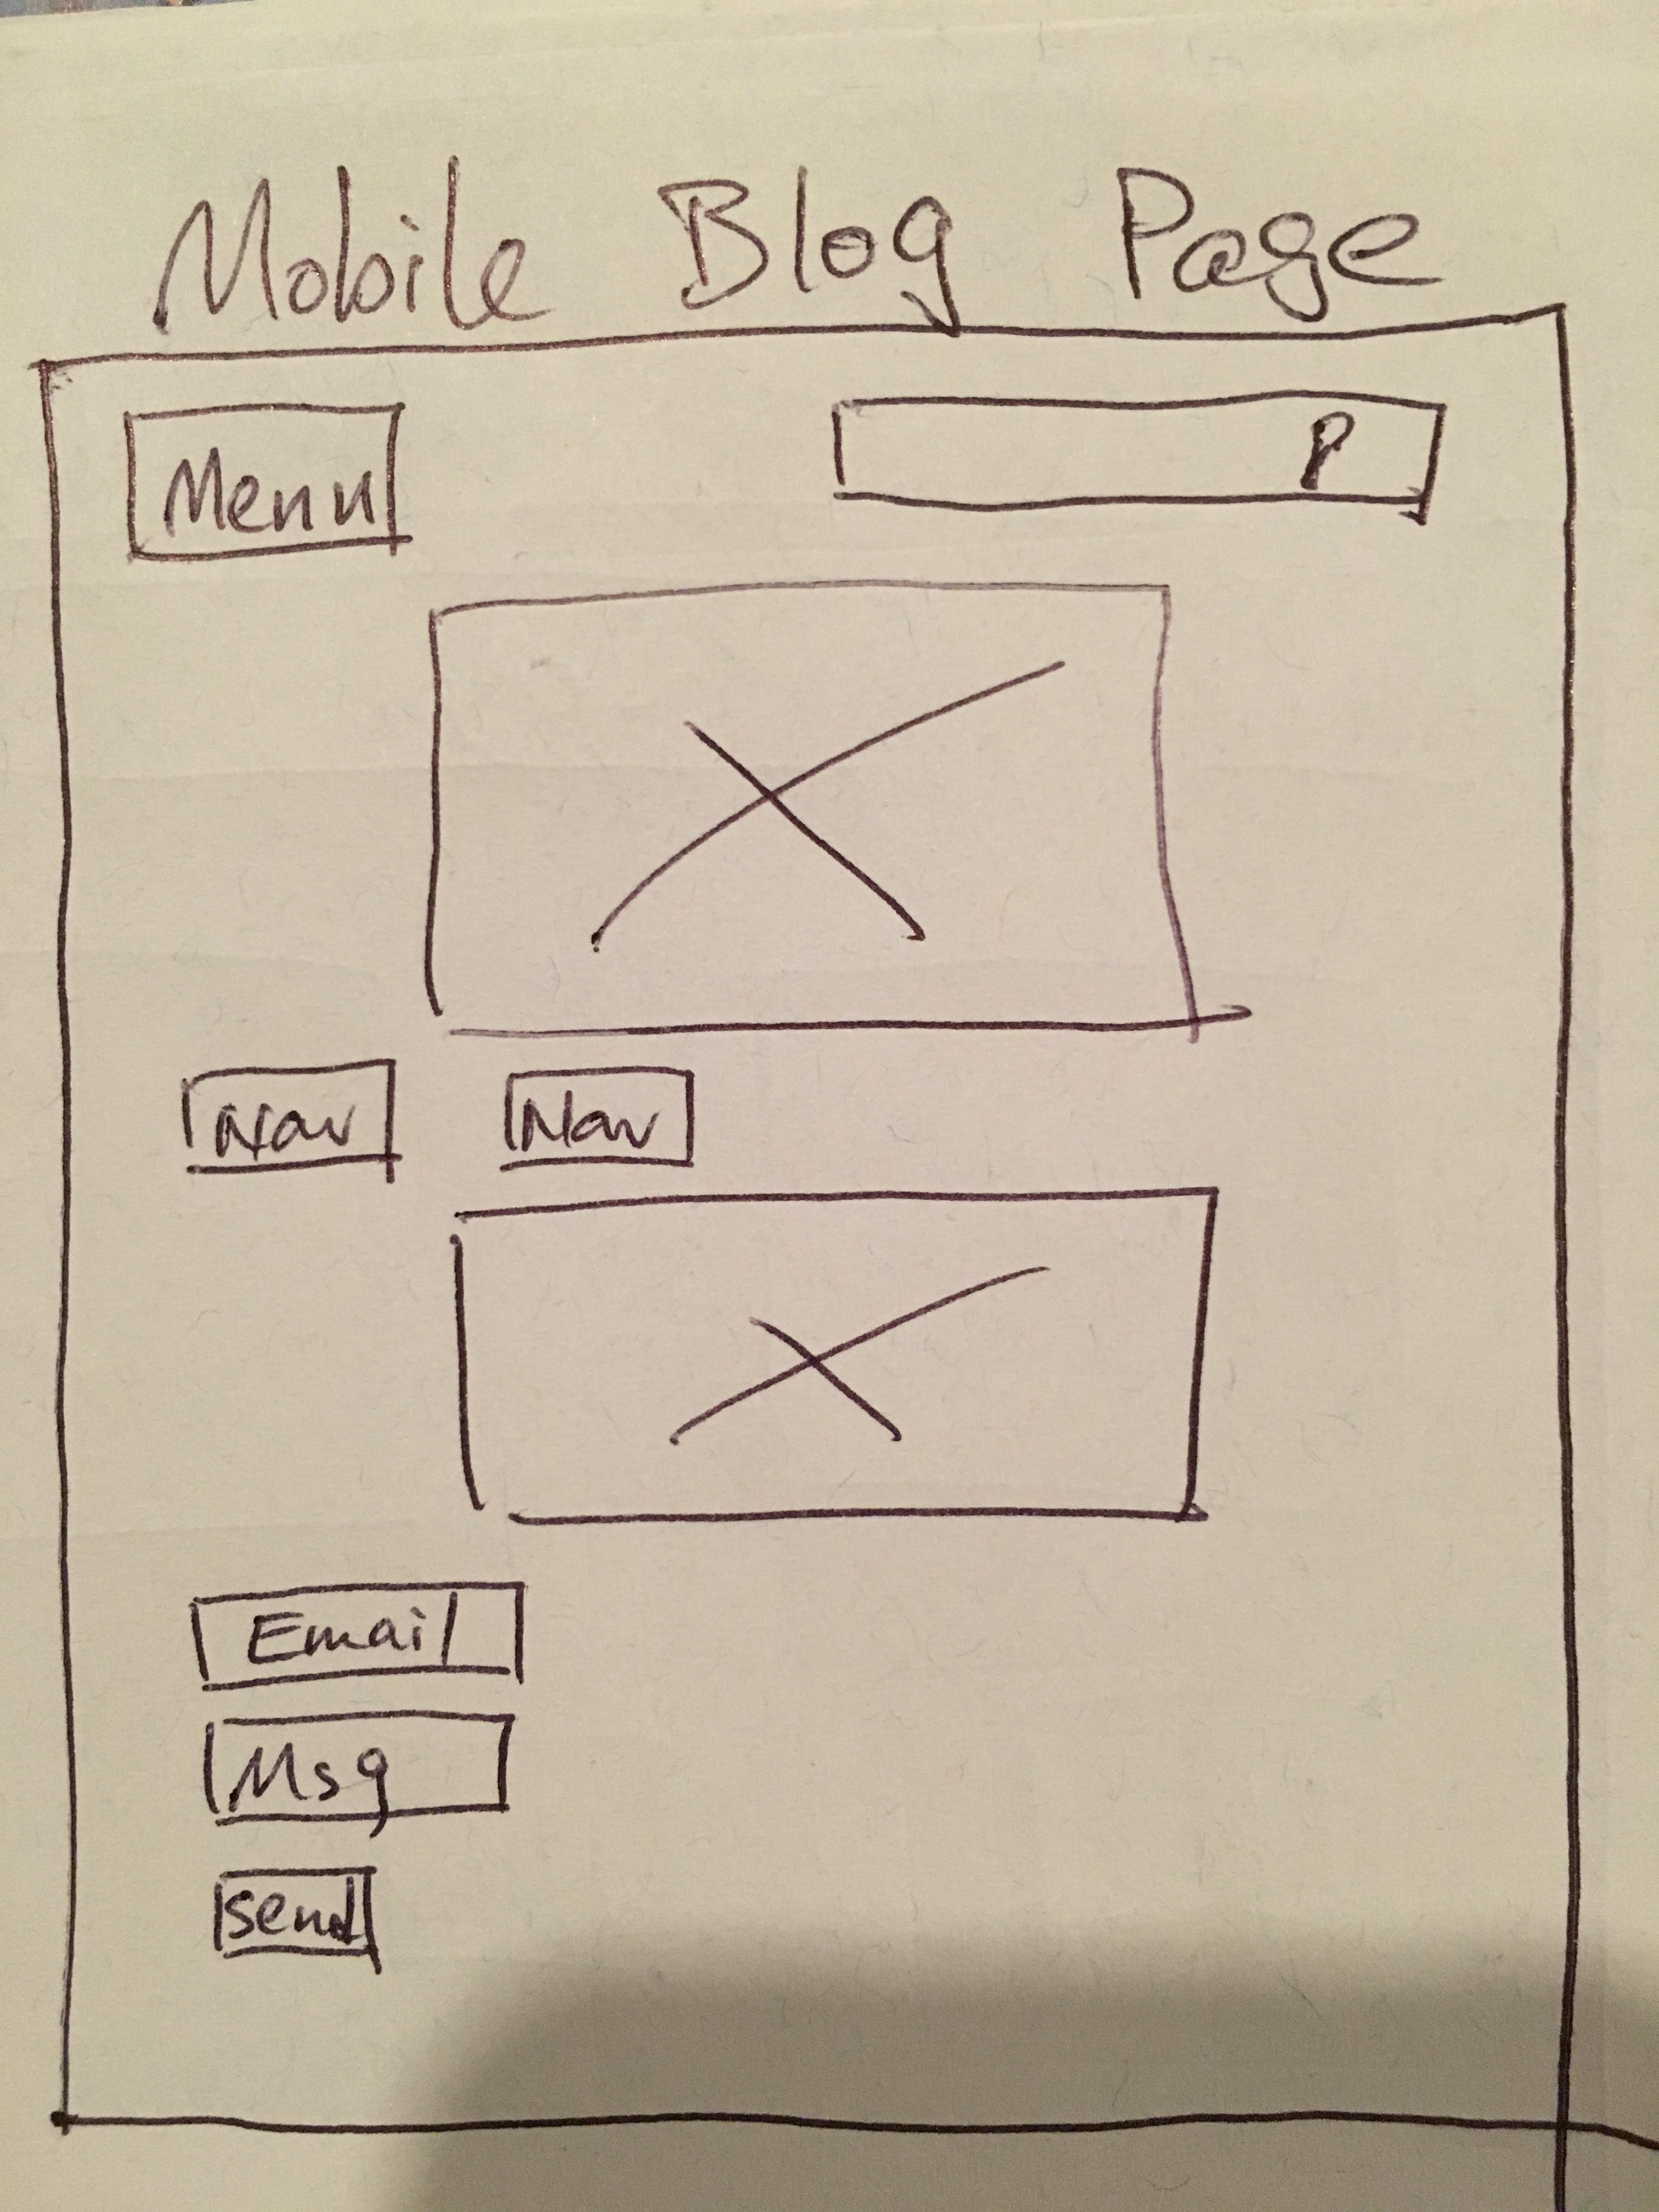 Mobile Blog Page
Menu
Nav Nav
Email
Msg
Send